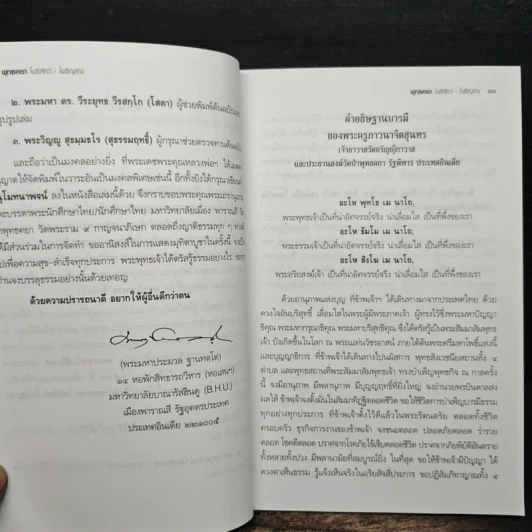 พุทธคยา โพธิสัตว์ - โพธิญาณ
๒. พระมหา ดร. วีระยุทธ วีรสกฺโก (โสดา) ผู้ช่วยพิมพ์ต้นฉบับและ
รูปรูปเล่ม
๓. พระวิญญู สุธมฺมธโร (สุธรรมฤทธิ์) ผู้กรุณาช่วยตรวจทานต้นฉบับ
และถือว่าเป็นมงคลอย่างยิ่ง ที่พระเดชพระคุณหลวงพ่อฯ ได้เมตตา
ญาตให้จัดพิมพ์ในวาระอันเป็นมงคลพิเศษเช่นนี้ อีกทั้งยังได้กรุณาเขียน
นุโมทนาพจน์ ลงในหนังสือเล่มนี้ด้วย จึงกราบขอบพระคุณพระเถรานุเถระ
และบรรดาพระนักศึกษาไทย/นักศึกษาไทย มหาวิทยาลัยเมือง พาราณสี วัด
ทยคุสินารา วัดพระราม ๙ กาญจนาภิเษก ตลอดถึงญาติธรรมทุก ๆ ท่าน
ได้มีส่วนร่วมในการจัดทำ ขออานิสงส์ในการแสดงมุทิตาบูชาในครั้งนี้ จงเป็น
ไปเพื่อความสุข-สำเร็จทุกประการ พระพุทธเจ้าได้ตรัสรู้ธรรมอย่างไร ขอทุก
ท่านจงบรรลุธรรมอย่างนั้นด้วยเทอญ
ด้วยความปรารถนาดี อยากให้ผู้อื่นดีกว่าตน
(พระมหาประมวล ฐานทตฺโต)
๑๔ หอพักสิทธารถวิหาร (หอเสนฯ)
มหาวิทยาลัยบาณารัสฮินดู (B.H.U.)
เมืองพาราณสี รัฐอุตตรประเทศ
ประเทศอินเดีย ๒๒๑๐๐๕
พุทธคยา โพธิสัตว์ - โพธิญาณ ๑๑
คำอธิษฐานบารมี
ของพระครูภาวนาจิตสุนทร
เจ้าอาวาสวัดอรัญญิกาวาส
และประธานสงฆ์วัดป่าพุทธคยา รัฐพิหาร ประเทศอินเดีย
อะโห พุทโธ เม นาโถ,
พระพุทธเจ้าเป็นที่น่าอัศจรรย์จริง น่าเลื่อมใส เป็นที่พึ่งของเรา
อะโห ธัมโม เม นาโถ,
พระธรรมเจ้าเป็นที่น่าอัศจรรย์จริง น่าเลื่อมใส เป็นที่พึ่งของเรา
อะโห สังโฆ เม นาโถ,
พระอริยสงฆ์เจ้า เป็นที่น่าอัศจรรย์จริง น่าเลื่อมใส เป็นที่พึ่งของเรา
ด้วยอานุภาพแห่งบุญ ที่ข้าพเจ้าฯ ได้เดินทางมาจากประเทศไทย ด้วย
ดวงใจอันบริสุทธิ์ เลื่อมใสในพระผู้มีพระภาคเจ้า ผู้ทรงไว้ซึ่งพระมหาปัญญา
ธิคุณ พระมหากรุณาธิคุณ พระมหาบริสุทธิคุณ ซึ่งได้ตรัสรู้เป็นพระสัมมาสัมพุทธ
เจ้า บังเกิดขึ้นในโลก ณ พระแท่นวัชรอาสน์ ภายใต้ต้นพระศรีมหาโพธิ์แห่งนี้
และบุญญาธิการ ที่ข้าพเจ้าได้เดินทางไปนมัสการ พุทธสังเวชนียสถานทั้ง ๔
ตำบล และพุทธสถานที่พระสัมมาสัมพุทธเจ้า ทรงบำเพ็ญพุทธกิจ ณ กาลครั้ง
นี้ จงมีอานุภาพ มีพลานุภาพ มีบุญฤทธิ์ที่ยิ่งใหญ่ จงอำนวยพรบันดาลส่ง
ผลให้ ข้าพเจ้าจงตั้งมั่นในสัมมาทิฏฐิตลอดชีวิต ขอให้ชีวิตการบำเพ็ญบารมีธรรม
ทุกอย่างทุกประการ ที่ข้าพเจ้าตั้งไว้ดีแล้วในพระรัตนตรัย ตลอดทั้งชีวิต
ครอบครัว ธุรกิจการงานของข้าพเจ้า จงชนะตลอด ปลอดภัยตลอด ร่ำรวย
ตลอด โชคดีตลอด ปราศจากโรคภัยไข้เจ็บตลอดชีวิต ปราศจากภัยพิบัติอันตราย
ทั้งหลายทั้งปวง มีพลานามัยที่สมบูรณ์ยิ่ง ในที่สุด ขอให้ข้าพเจ้ามีปัญญา ได้
ดวงตาเห็นธรรม รู้แจ้งเห็นจริงในอริยสัจสี่ประการ ขอปฏิสัมภิทาญาณทั้ง ๔